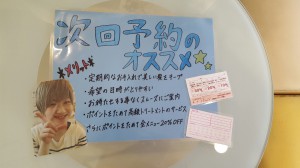 次回予約の
オススメ
メリット
・定期的なお手入れで美しい髪をキープ
・希望の日時がとりやすい
・お待たせする事なくスムーズにご案内
・ポイントをためて高級トリートメントのサービス
さらにポイントをためて全メニュー20%OFF